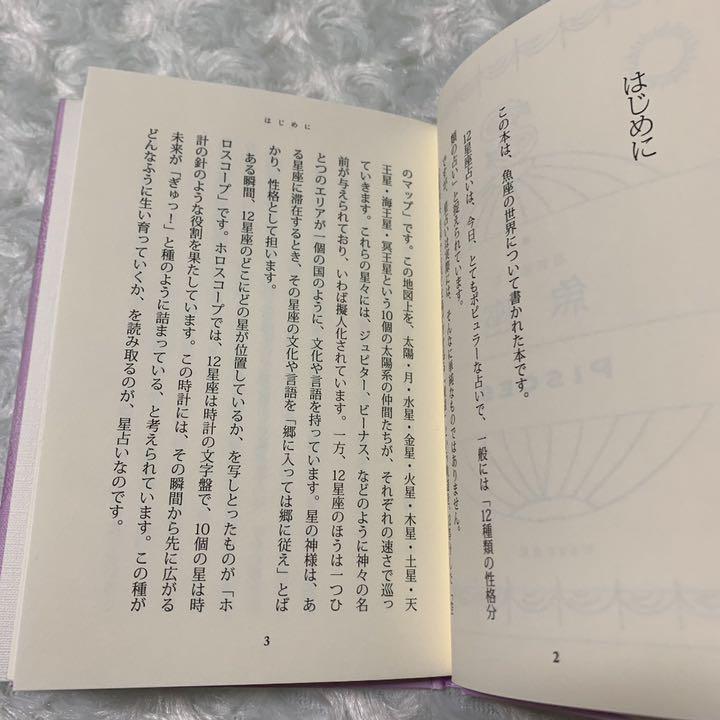 はじめに
この本は、魚座の世界について書かれた本です。
12星座占いは、今日、とてもポピュラーな占いで、一般には「12種類の性格分
類の占い」と捉えられています。
そんなに単純なものではありません。
2
はじめに
のマップ」です。この地図上を、太陽・月・水星・金星・火星・木星・土星・天
王星・海王星・冥王星という10個の太陽系の仲間たちが、それぞれの速さで巡っ
ていきます。これらの星々には、ジュピター、ビーナス、などのように神々の名
前が与えられており、いわば擬人化されています。一方、12星座のほうは一つひ
とつのエリアが一個の国のように、文化や言語を持っています。星の神様は、あ
る星座に滞在するとき、その星座の文化や言語を「郷に入っては郷に従え」とば
かり、性格として担います。
ある瞬間、12星座のどこにどの星が位置しているか、を写しとったものが「ホ
ロスコープ」です。ホロスコープでは、12星座は時計の文字盤で、10個の星は時
計の針のような役割を果たしています。この時計には、その瞬間から先に広がる
未来が「ぎゅっ！」と種のように詰まっている、と考えられています。この種が
どんなふうに生い育っていくか、を読み取るのが、星占いなのです。
3
魚
PISCES